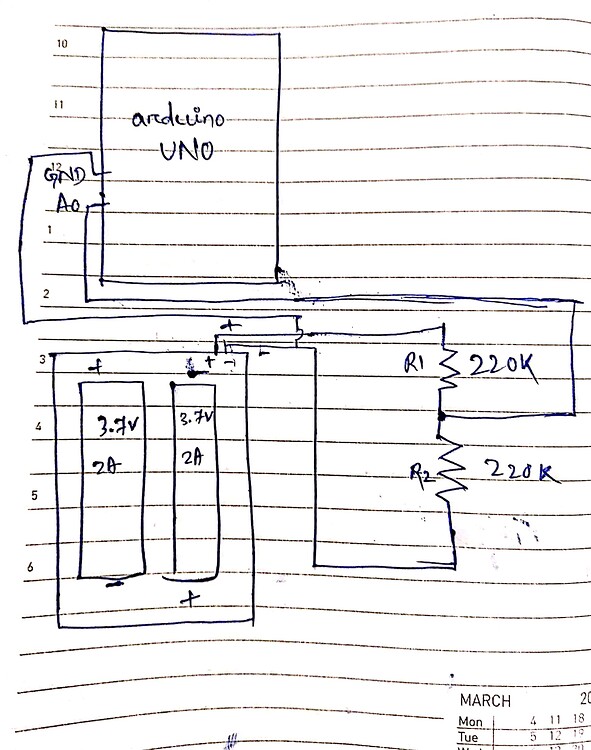 10
11
arduino
UNO
12
GND
A0
1
2
+
+ - -
3
+
R1 220K
4
3.7V 3.7V
2A 2A
R2 220K
5
6
-
+
MARCH 20
Mon 4 11 18
Tue 5 12 19